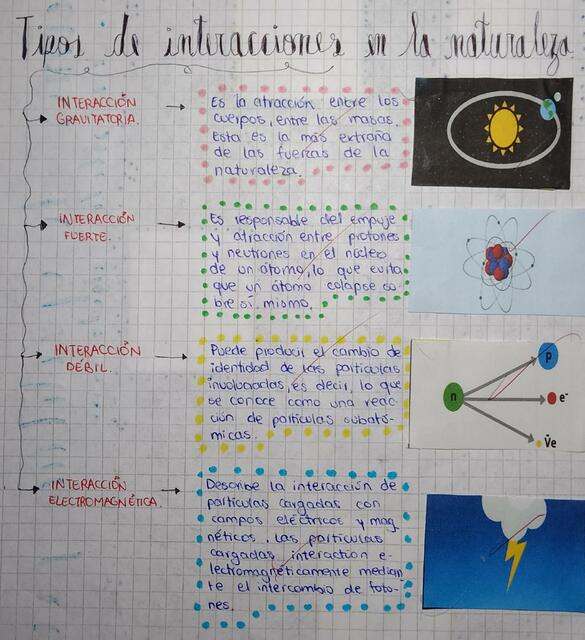 Tipos de interacciones en la naturaleza
INTERACCIÓN
GRAVITATORIA.
Es la atracción entre los
cuerpos, entre las masas.
Esta es la más extraña
de las fuerzas de la
naturaleza.
INTERACCIÓN
FUERTE.
Es responsable del empuje
y atracción entre protones
y neutrones en el núcleo
de un átomo, lo que evita
que un átomo colapse so-
bre sí mismo.
INTERACCIÓN
DÉBIL.
Puede producir el cambio de
identidad de las partículas
involucradas, es decir, lo que
se conoce como una reac-
ción de partículas subató-
micas.
n
p
e-
v̄e
INTERACCIÓN
ELECTROMAGNÉTICA.
Describe la interacción de
partículas cargadas con
campos eléctricos y mag
néticos. Las partículas
cargadas interaction e-
lectromagnéticamente median
te el intercambio de foto-
nes.